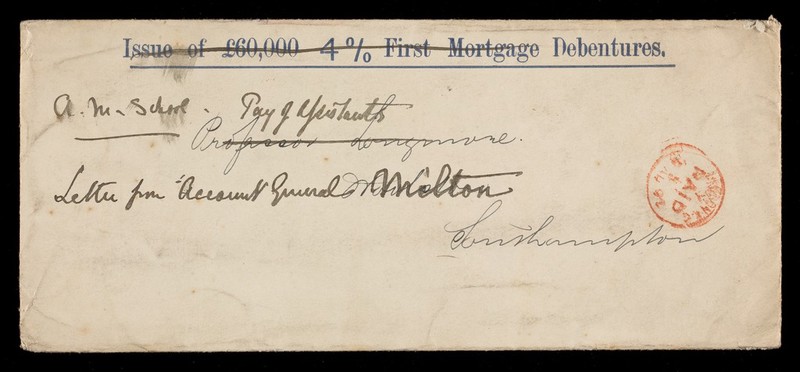 Issue of £60,000 4% First Mortgage Debentures.
A. M. School. Pay of Assistants
Professor Longmore.
Letter from "Account General Milton
Southampton
PAID